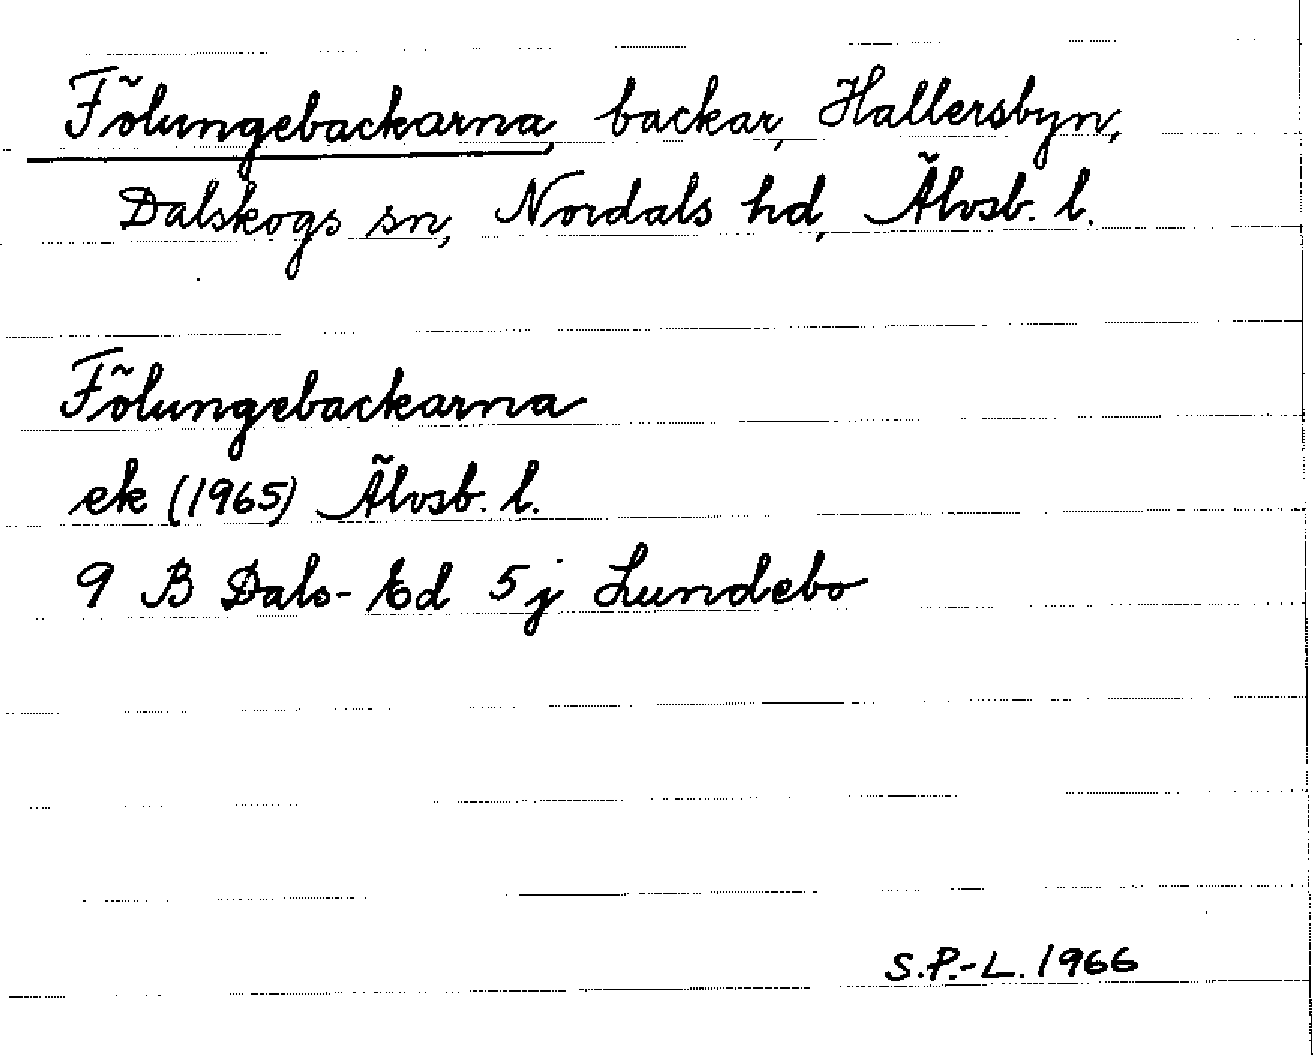 Fölungebackarna, backar, Hallersbyn,
Dalskogs sn, Nordals hd, Älvsb. l.
Fölungebackarna
ek (1965) Älvsb. l.
9 B Dals-Ed 5 j Lundebo
S.P.-L. 1966